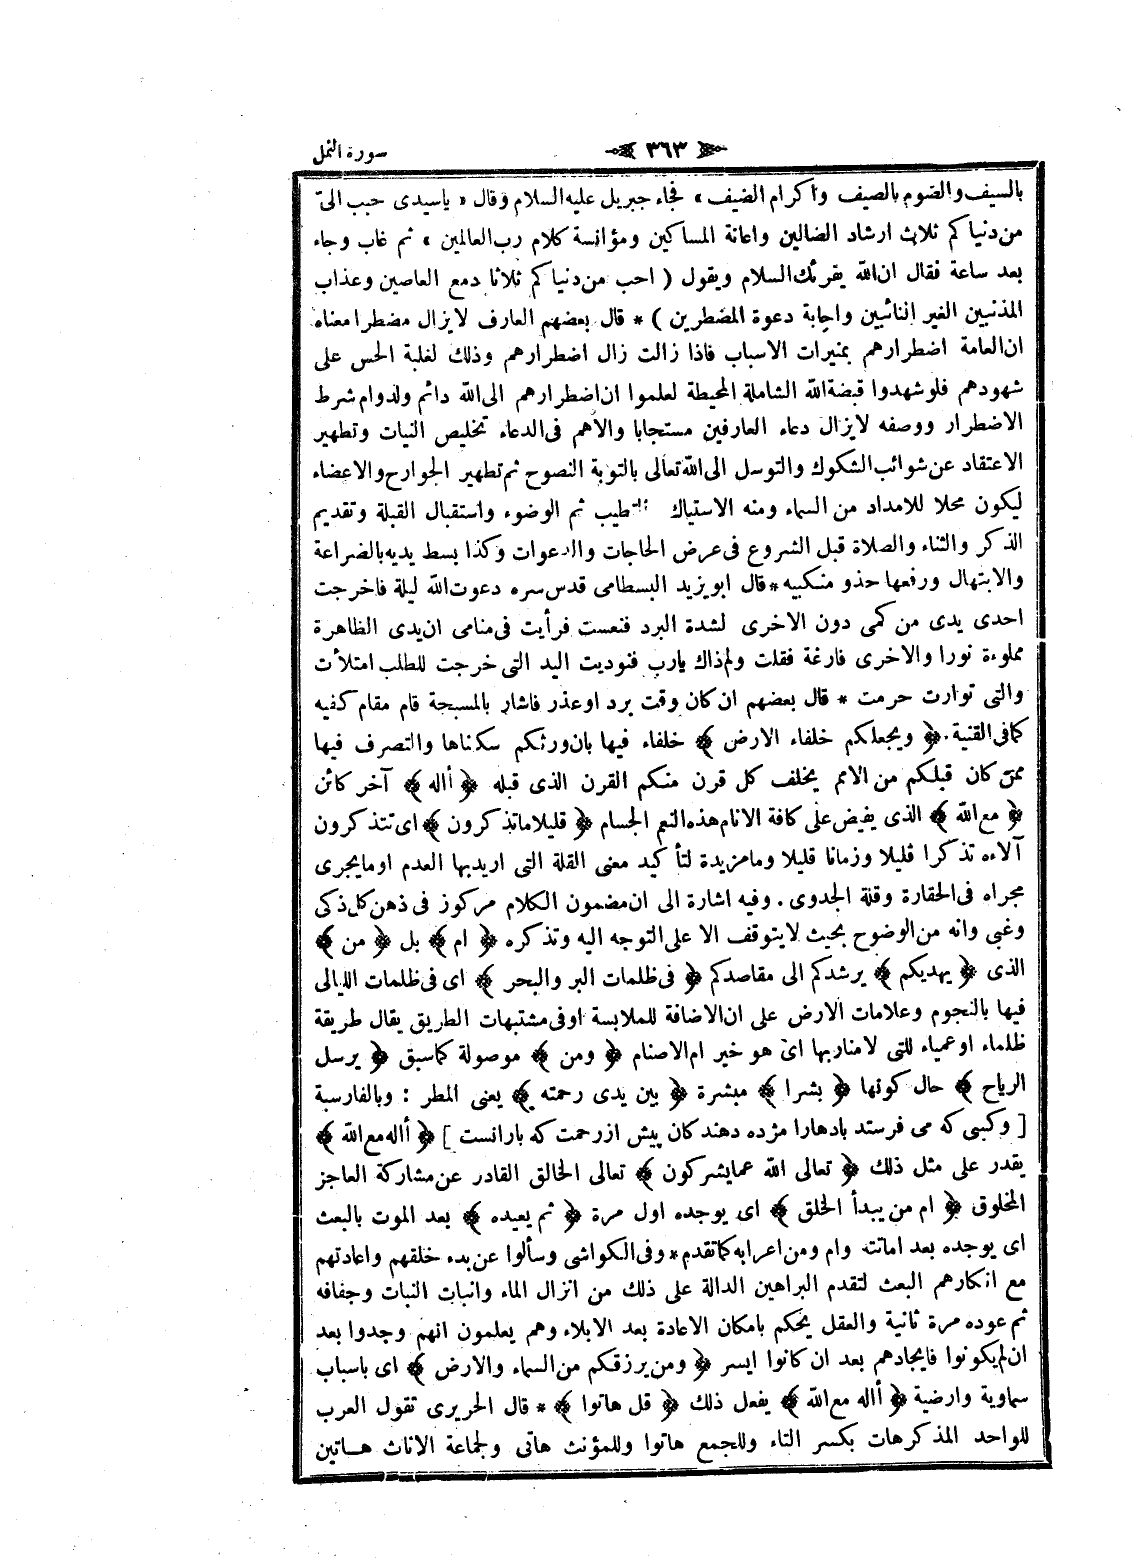 سورة النمل
﴿ ٣٦٣ ﴾
بالسيف والصوم بالصيف واكرام الضيف » فجاء جبريل عليه السلام وقال « ياسيدى حبب الىّ
من دنياكم ثلاث ارشاد الضالين واعانة المساكين ومؤانسة كلام رب العالمين » ثم غاب وجاء
بعد ساعة فقال ان الله يقرئك السلام ويقول ( احب من دنياكم ثلاثا دمع العاصين وعذاب
المذنبين الغير التائبين واجابة دعوة المضطرين ) * قال بعضهم العارف لايزال مضطرا معناه
ان العامة اضطرارهم بمثيرات الاسباب فاذا زالت زال اضطرارهم وذلك لغلبة الحس على
شهودهم فلو شهدوا قبضة الله الشاملة المحيطة لعلموا ان اضطرارهم الى الله دائم ولدوام شرط
الاضطرار ووصفه لايزال دعاء العارفين مستجابا والاهم فى الدعاء تخليص النيات وتطهير
الاعتقاد عن شوائب الشكوك والتوسل الى الله تعالى بالتوبة النصوح ثم تطهير الجوارح والاعضاء
ليكون محلا للامداد من السماء ومنه الاستياك التطيب ثم الوضوء واستقبال القبلة وتقديم
الذكر والثناء والصلاة قبل الشروع فى عرض الحاجات والدعوات وكذا بسط يديه بالضراعة
والابتهال ورفعها حذو منكبيه * قال ابويزيد البسطامى قدس سره دعوت الله ليلة فاخرجت
احدى يدى من كمى دون الاخرى لشدة البرد فنعست فرأيت فى منامى ان يدى الظاهرة
مملوءة نورا والاخرى فارغة فقلت ولم ذاك يارب فنوديت اليد التى خرجت للطلب امتلأت
والتى توارت حرمت * قال بعضهم ان كان وقت برد او عذر فاشار بالمسبحة قام مقام كفيه
كما فى القنية . ﴿ ويجعلكم خلفاء الارض ﴾ خلفاء فيها بان ورثكم سكناها والتصرف فيها
ممن كان قبلكم من الامم يخلف كل قرن منكم القرن الذى قبله ﴿ أاله ﴾ آخر كائن
﴿ مع الله ﴾ الذى يفيض على كافة الانام هذه النعم الجسام ﴿ قليلا ماتذكرون ﴾ اى تتذكرون
آلاءه تذكرا قليلا وزمانا قليلا وما مزيدة لتأكيد معنى القلة التى اريد بها العدم او مايجرى
مجراه فى الحقارة وقلة الجدوى . وفيه اشارة الى ان مضمون الكلام مركوز فى ذهن كل ذكى
وغبى وانه من الوضوح بحيث لايتوقف الا على التوجه اليه وتذكره ﴿ ام ﴾ بل ﴿ من ﴾
الذى ﴿ يهديكم ﴾ يرشدكم الى مقاصدكم ﴿ فى ظلمات البر والبحر ﴾ اى فى ظلمات الليالى
فيها بالنجوم وعلامات الارض على ان الاضافة للملابسة او فى مشتبهات الطريق يقال طريقة
ظلماء او عمياء للتى لا مناربها اى هو خير ام الاصنام ﴿ ومن ﴾ موصولة كماسبق ﴿ يرسل
الرياح ﴾ حال كونها ﴿ بشرا ﴾ مبشرة ﴿ بين يدى رحمته ﴾ يعنى المطر : وبالفارسية
[ وكسى كه مى فرستد بادهارا مژده دهندكان پيش از رحمت كه بارانست ] ﴿ أاله مع الله ﴾
يقدر على مثل ذلك ﴿ تعالى الله عمايشركون ﴾ تعالى الخالق القادر عن مشاركة العاجز
المخلوق ﴿ ام من يبدأ الخلق ﴾ اى يوجده اول مرة ﴿ ثم يعيده ﴾ بعد الموت بالبعث
اى يوجده بعد اماتته وام ومن اعرابه كماتقدم * وفى الكواشى وسألوا عن بدء خلقهم واعادتهم
مع انكارهم البعث لتقدم البراهين الدالة على ذلك من انزال الماء وانبات النبات وجفافه
ثم عوده مرة ثانية والعقل يحكم بامكان الاعادة بعد الابلاء وهم يعلمون انهم وجدوا بعد
ان لم يكونوا فايجادهم بعد ان كانوا ايسر ﴿ ومن يرزقكم من السماء والارض ﴾ اى باسباب
سماوية وارضية ﴿ أاله مع الله ﴾ يفعل ذلك ﴿ قل هاتوا ﴾ * قال الحريرى تقول العرب
للواحد المذكر هات بكسر التاء وللجمع هاتوا وللمؤنث هاتى ولجماعة الاناث هاتين